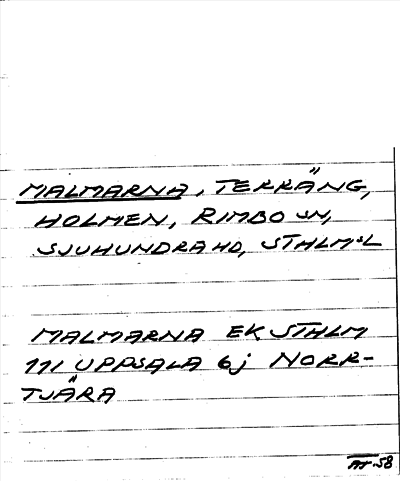 MALMARNA, TERRÄNG,
HOLMEN, RIMBO SN,
SJUHUNDRA HD, STHLMSL
MALMARNA EK STHLM
111 UPPSALA 6j NORR-
TJÄRA
AT 58